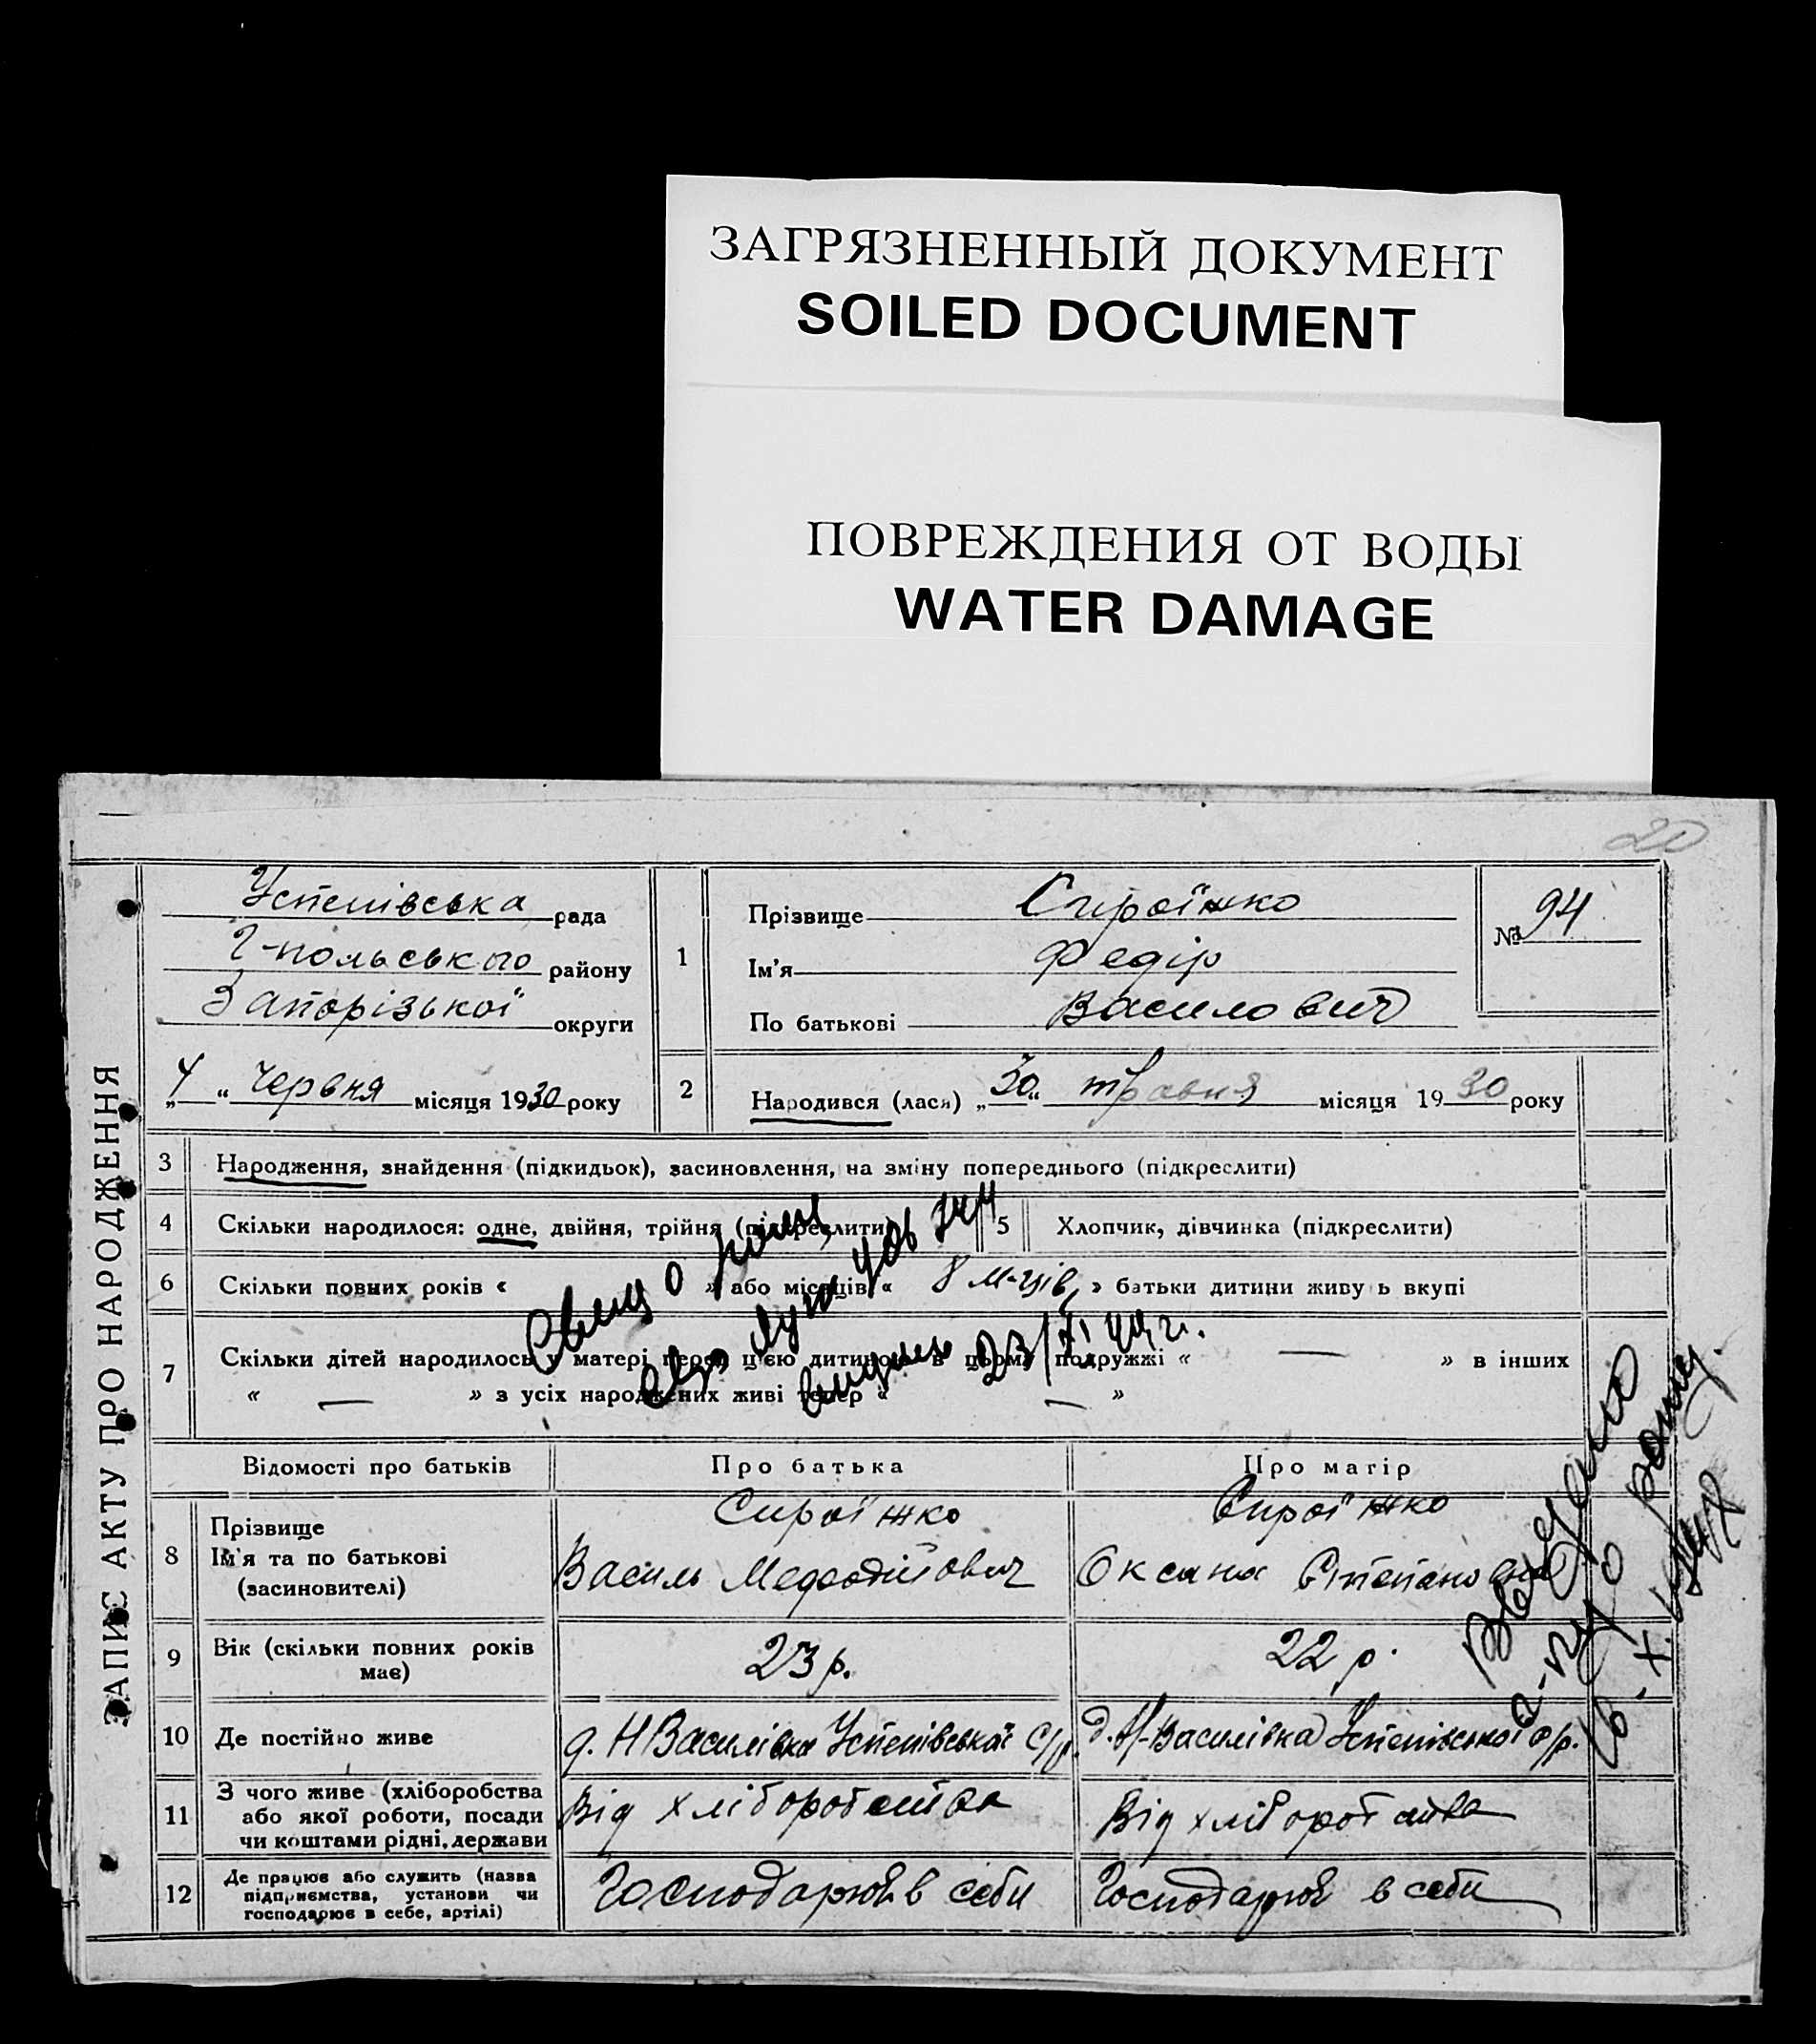 ЗАГРЯЗНЕННЫЙ ДОКУМЕНТ
SOILED DOCUMENT
ПОВРЕЖДЕНИЯ ОТ ВОДЫ
WATER DAMAGE
20
ЗАПИС АКТУ ПРО НАРОДЖЕННЯ
Успенівська рада
Г-польського району
Запорізької округи
„4“ Червня місяця 1930 року
1
Прізвище Сироїжко
Ім'я Федір
По батькові Василович
№ 94
2 Народився (лася) „30“ травня місяця 1930 року
3 Народження, знайдення (підкидьок), засиновлення, на зміну попереднього (підкреслити)
4 Скільки народилося: одне, двійня, трійня (підкреслити)
5 Хлопчик, дівчинка (підкреслити)
6 Скільки повних років « » або місяців « 8 м-ців » батьки дитини живуть вкупі
7 Скільки дітей народилось у матері перед цією дитиною в цьому подружжі « — » в інших
« — » з усіх народжених живі тепер « — »
23/XI
Відомості про батьків
Про батька
Про матір
8 Прізвище
Ім'я та по батькові
(засиновителі)
Сироїжко
Василь Мефодійович
Сироїжко
Оксана Степановна
9 Вік (скільки повних років
має)
23 р.
22 р.
10 Де постійно живе
д. Н Василівка Успенівської С/р.
д. Н-Василівка Успенівської с/р.
11 З чого живе (хліборобства
або якої роботи, посади
чи коштами рідні, держави
Від хліборобства
Від хліборобства
12 Де працює або служить (назва
підприємства, установи чи
господарює в себе, артілі)
Господарює в себи
Господарює в себи
Видано